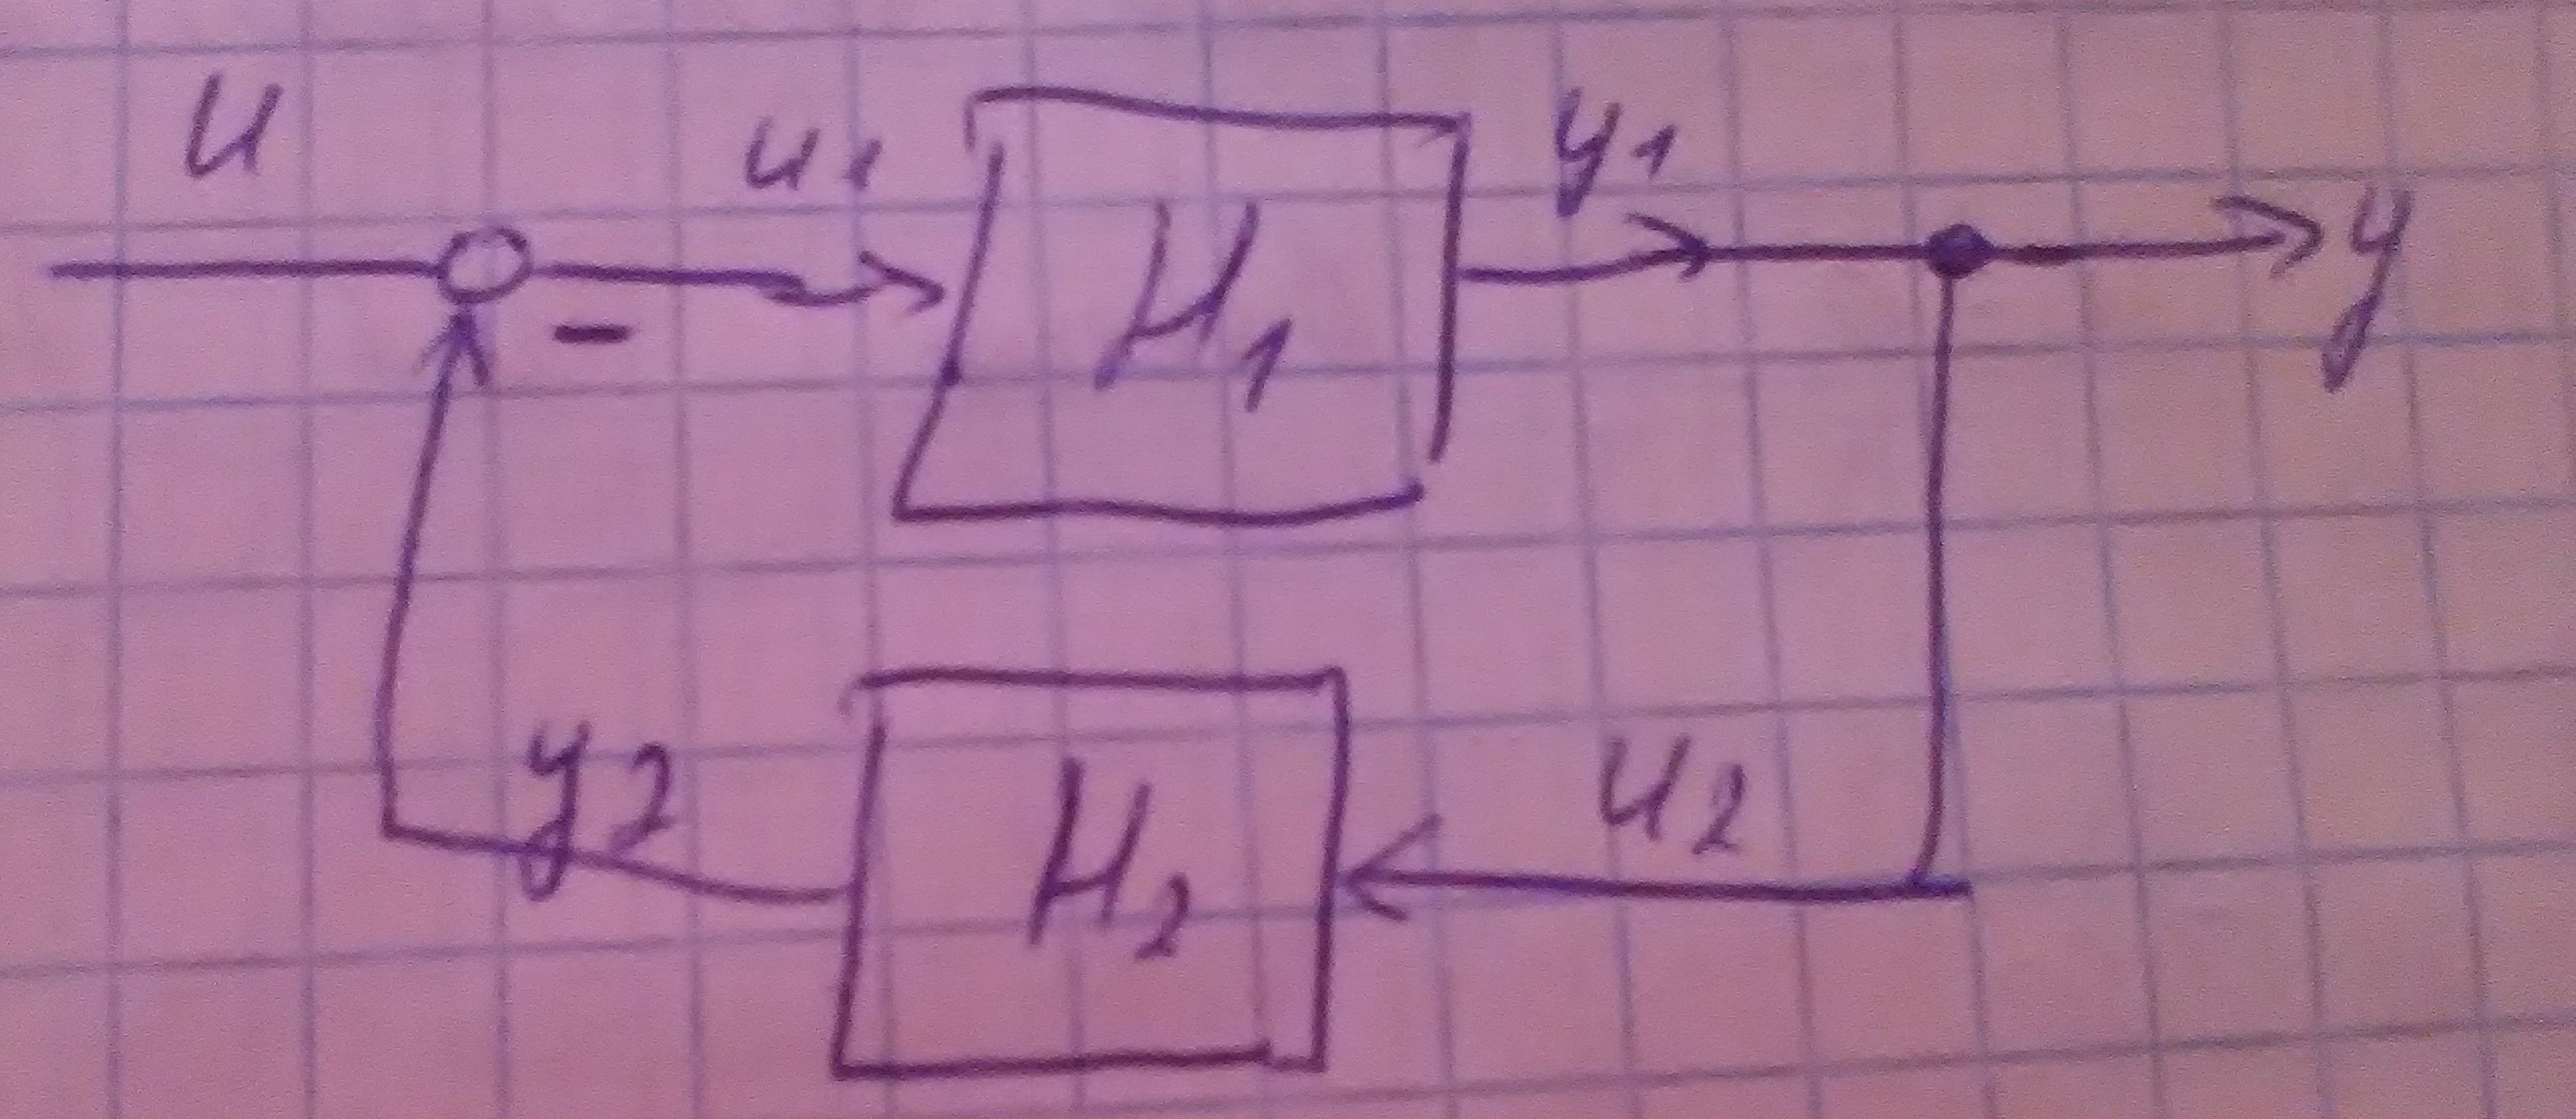 u
u1
H1
y1
y
-
y2
H2
u2